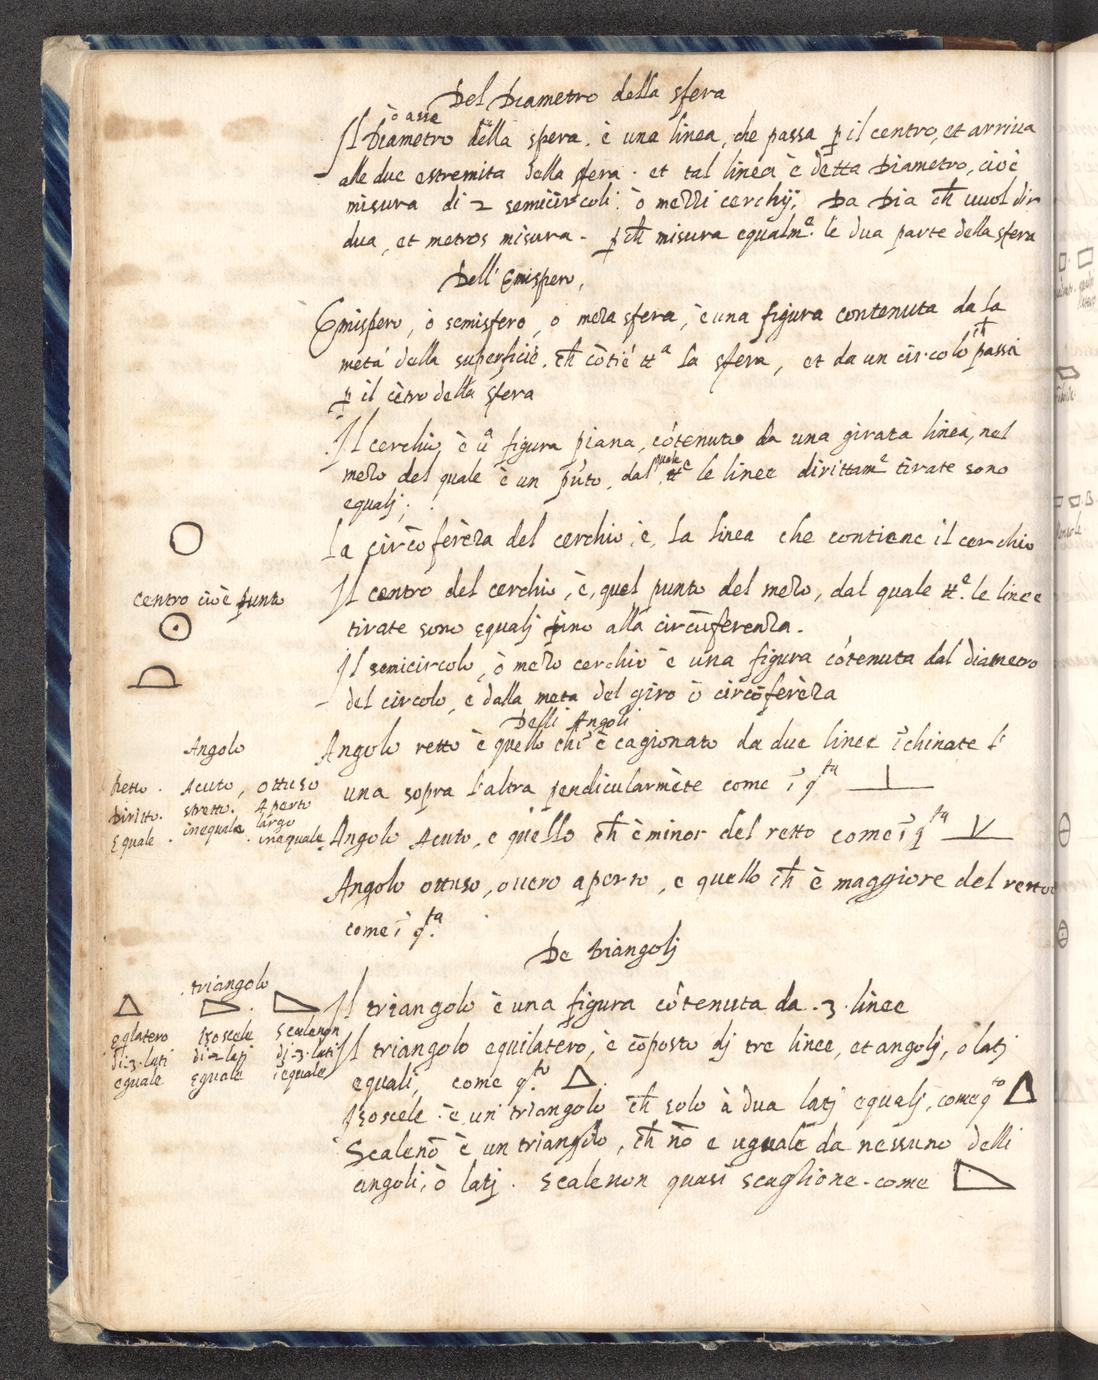 Del Diametro della sfera
ò asse
Il Diametro della spera. è una linea, che passa p il centro, et arriua
alle due estremita della sfera. et tal linea è detta Diametro, cioè
misura di 2 semicircoli. ò mezzi cerchij; Da Dia ch̃ vuol dir
dua, et metros misura. p ch̃ misura equalm.e le dua parte della sfera
Dell' Emispero,
Emispero, ò semisfero, o meza sfera, è una figura contenuta da la
metà della superficie. ch̃ cõtiẽ tt.a la sfera, et da un circolo ch̃ passi
p il cẽtro della sfera
Il cerchio, è ũa figura piana, cõtenuta da una girata linea, nel
mezo del quale è un pũto, dal quale tt.e le linee dirittam.e tirate sono
equalj;
La circõferẽza del cerchio, è, la linea che contiene il cerchio
Il centro del cerchio, è, quel punto del mezo, dal quale tt.e le linee
tirate sono equalj fino alla circũferenza.
Il semicircolo, ò mezo cerchio è una figura cõtenuta dal diametro
del circolo, e dalla meta del giro ò circõferẽza
Delli Angoli
Angolo retto è quello ch̃ è cagionato da due linee ĩchinate l'
una sopra l'altra pendicularmẽte come ĩ q.ta
Angolo Acuto, e quello ch̃ è minor del retto come ĩ q.ta
Angolo ottuso, ouero aperto, e quello ch̃ è maggiore del retto
come ĩ q.ta
De triangolj
Il triangolo è una figura cõtenuta da .3. linee
Il triangolo equilatero, è cõposto dj tre linee, et angolj, o latj
equali, come q.to
Isoscele è un triangolo ch̃ solo à dua latj equalj, come q.to
Scalenõ è un triangolo, ch̃ nõ e uguale da nessuno delli
angoli, ò latj. Scalenon quasi scaglione. come
centro cioè punto
Angolo
Retto. Acuto, ottuso
Diritto. stretto. Aperto
largo
Equale. inequale. inequale
triangolo
eqlatero Isoscele Scalenon
di.3.lati di.2.latj dj.3.lati
eguale Eguale ĩequale